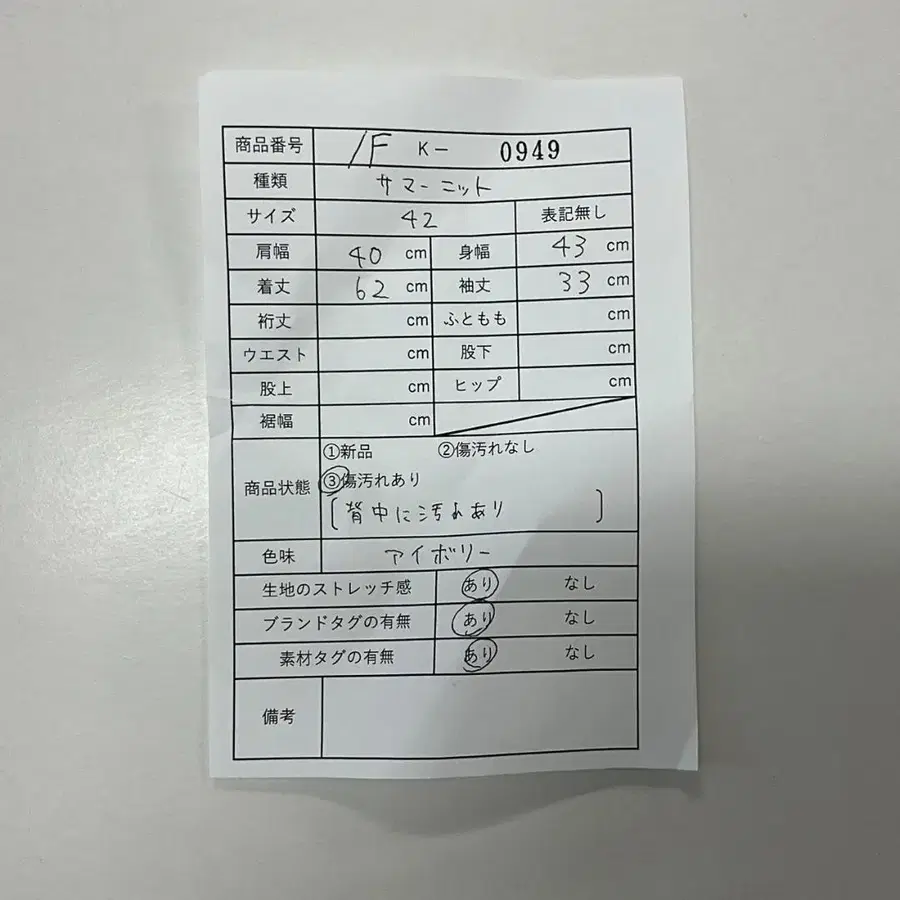 商品番号 1F K- 0949
種類 サマーニット
サイズ 42 表記無し
肩幅 40 cm 身幅 43 cm
着丈 62 cm 袖丈 33 cm
裄丈 cm ふともも cm
ウエスト cm 股下 cm
股上 cm ヒップ cm
裾幅 cm
①新品 ②傷汚れなし
商品状態 ③傷汚れあり
[背中に汚れあり]
色味 アイボリー
生地のストレッチ感 あり なし
ブランドタグの有無 あり なし
素材タグの有無 あり なし
備考